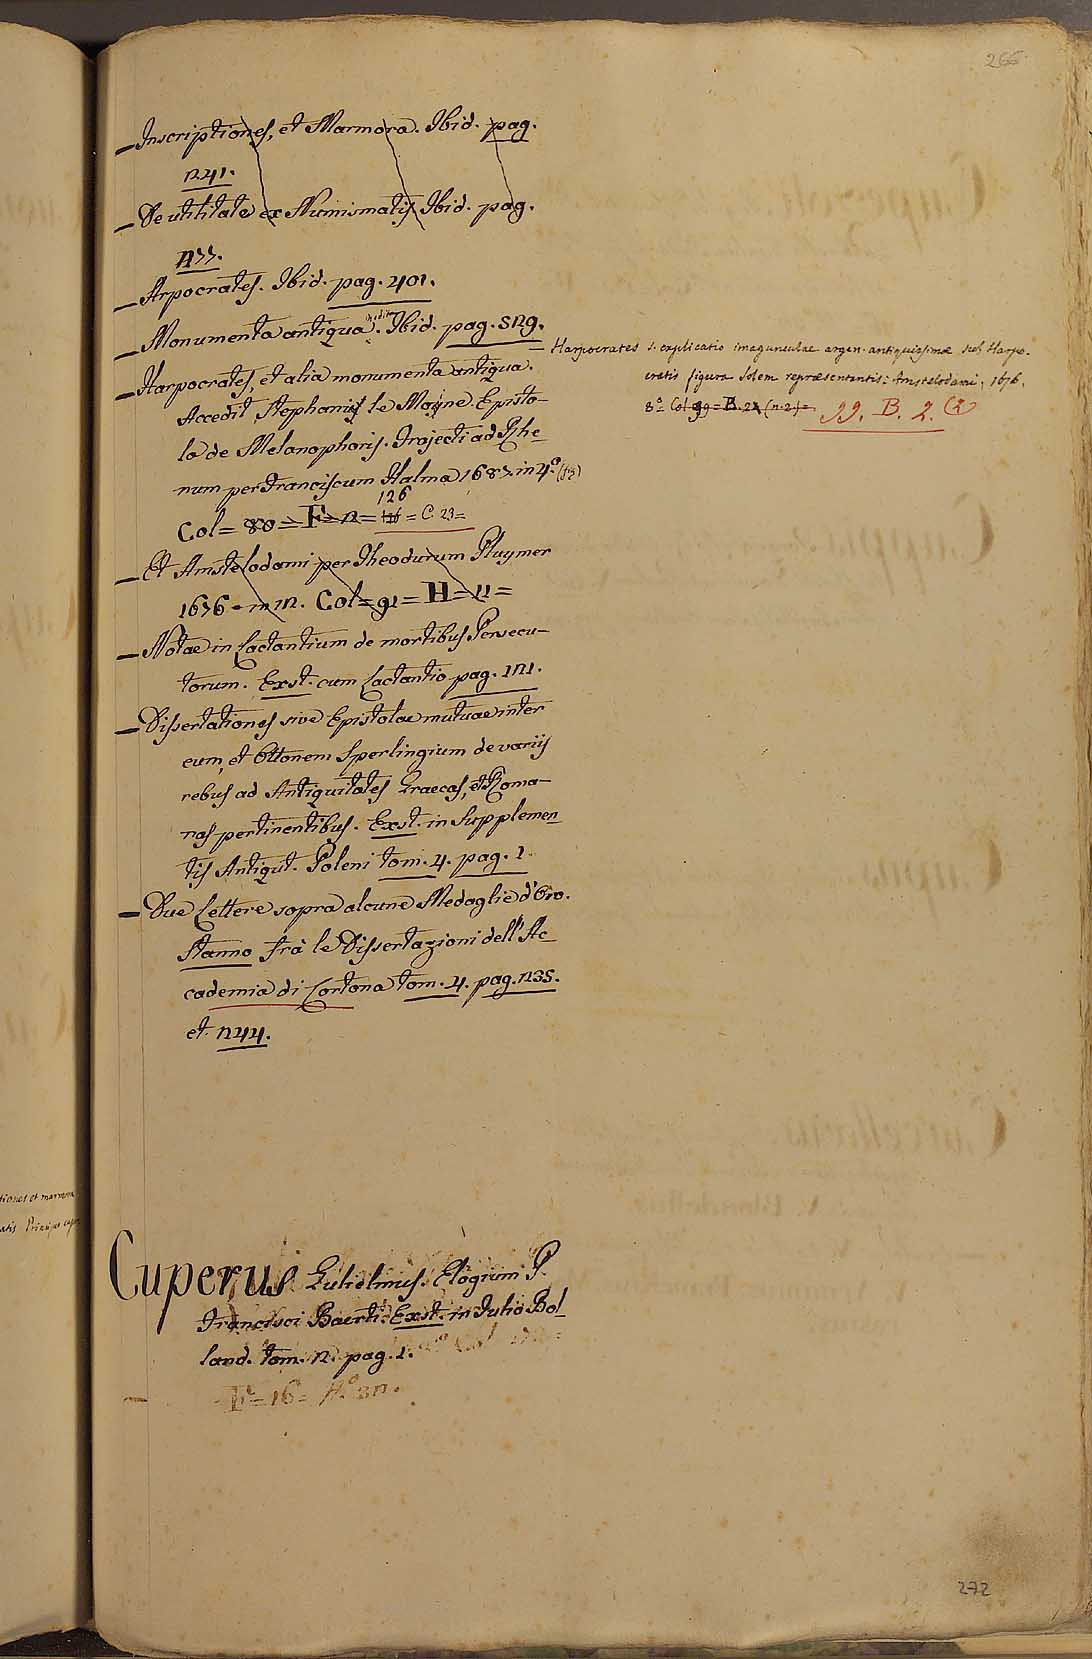 266
— Inscriptiones, et Marmora. Ibid. pag.
241.
— De utilitate ex Numismatis. Ibid. pag.
277.
— Arpocrates. Ibid. pag. 401.
— Monumenta antiqua. Ibid. pag. 529.
— Harpocrates, et alia monumenta antiqua.
Accedit Stephani le Moyne Episto-
la de Melanophoris. Trajecti ad Rhe-
num per Franciscum Halma 1687. in 4.º
126
Col = 80 = F = 12 = 116 = C. 23 =
— Et Amstelodami per Theodorum Pluymer
1676 = in 12. Col = 91 = H = 11 =
— Notae in Lactantium de mortibus Persecu-
torum. Exst. cum Lactantio pag. 121.
— Dissertationes sive Epistolae mutuae inter
eum, et Ottonem Sperlingium de variis
rebus ad Antiquitates Graecas, et Roma-
nas pertinentibus. Exst. in Supplemen-
tis Antiqut. Poleni tom. 4. pag. 1.
— Due Lettere sopra alcune Medaglie d'Oro.
Stanno frà le Dissertazioni dell'Ac-
cademia di Cortona tom. 4. pag. 235.
et 244.
— Harpocrates s. explicatio imagunculae argen. antiquissimae sub Harpo-
cratis figura Solem repraesentantis: Amstelodami, 1676.
8º Col 99 = B. 22 (n. 2.) = 99. B. 2. (2)
tiones et marmora
Cuperus Gulielmus. Elogium P.
Francisci Baerti. Exst. in Julio Bol-
land. tom. 2. pag. 1.
— F = 16 = A.º 32.
272